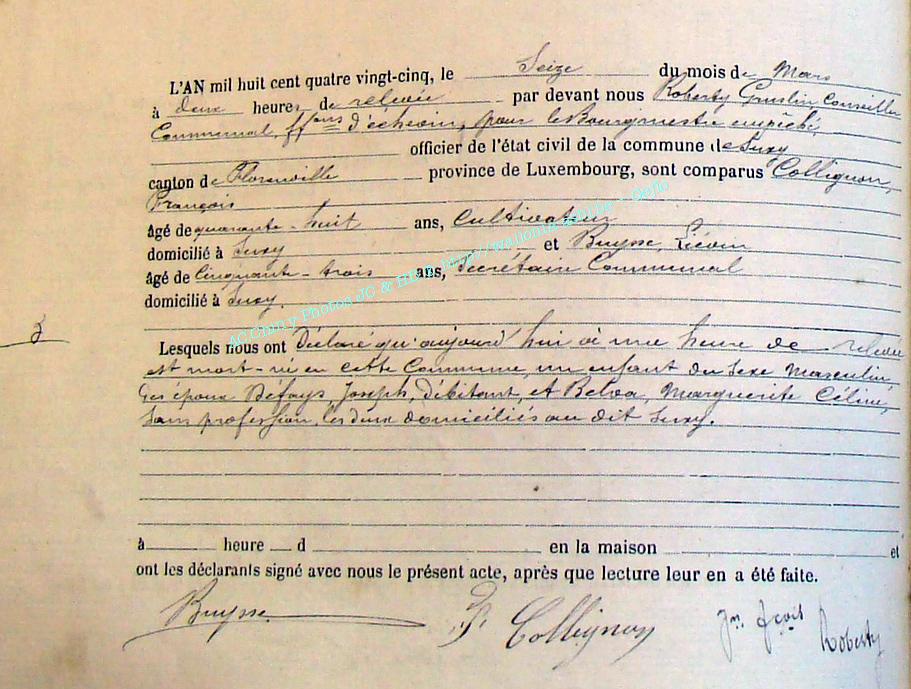 L'AN mil huit cent quatre vingt-cinq, le Seize du mois de Mars
à deux heures de relevée par devant nous Roberty Conseiller
Communal, ff.ons d'échevin, pour le Bourgmestre empêché
officier de l'état civil de la commune de Suxy
canton de Florenville province de Luxembourg, sont comparus Collignon,
François
âgé de quarante-huit ans, Cultivateur
domicilié à Suxy et Buysse, Liévin
âgé de Cinquante-trois ans, Secrétaire Communal
domicilié à Suxy.
5
Lesquels nous ont Déclaré qu'aujourd'hui à une heure de relevée
est mort-né en cette Commune, un enfant du Sexe Masculin,
des époux Défays, Joseph, Débitant, et Belva, Marguerite Céline,
Sans profession, les deux domiciliés au dit Suxy.
à heure d en la maison et
ont les déclarants signé avec nous le présent acte, après que lecture leur en a été faite.
Buysse F. Collignon Roberty